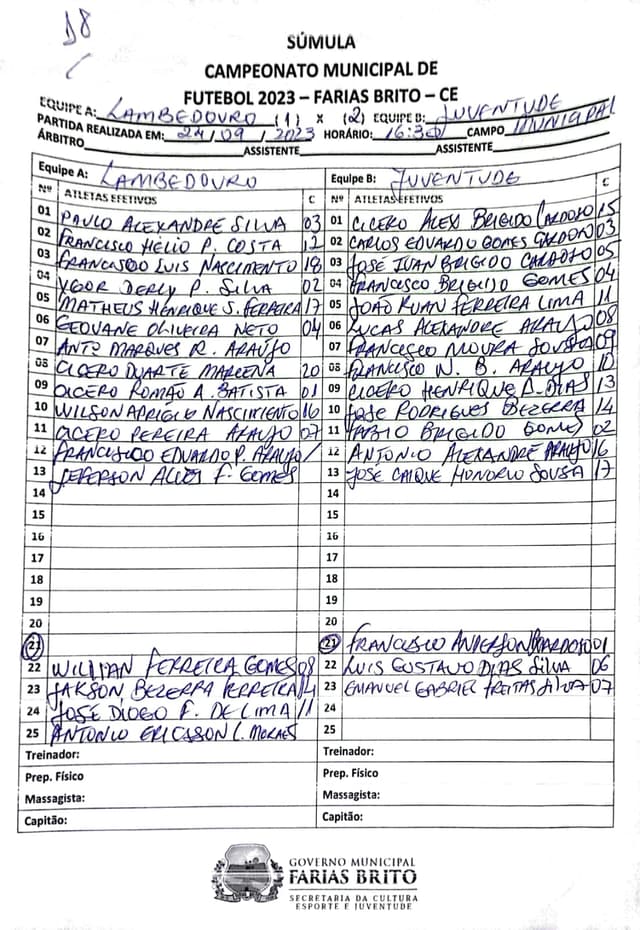 18
SÚMULA
CAMPEONATO MUNICIPAL DE
FUTEBOL 2023 – FARIAS BRITO – CE
EQUIPE A: LAMBEDOURO (1) X (2) EQUIPE B: JUVENTUDE
PARTIDA REALIZADA EM: 24/09/2023 HORÁRIO: 16:30 CAMPO MUNICIPAL
ÁRBITRO ASSISTENTE ASSISTENTE
Equipe A: LAMBEDOURO
Nº ATLETAS EFETIVOS C
01 PAULO ALEXANDRE SILVA 03
02 FRANCISCO HÉLIO P. COSTA 12
03 FRANCISCO LUIS NASCIMENTO 18
04 YGOR DERLY P. SILVA 02
05 MATHEUS HENRIQUE S. FERREIRA 17
06 GEOVANE OLIVEIRA NETO 04
07 ANTº MARQUES R. ARAÚJO
08 CICERO DUARTE MARLENA 20
09 CICERO ROMÃO A. BATISTA 01
10 WILSON APRIGIO NASCIMENTO 16
11 CICERO PEREIRA ARAUJO 07
12 FRANCISCO EDUARDO P. ARAUJO
13 JEFERSON ALVES F. GOMES
14
15
16
17
18
19
20
21
22 WILLIAN FERREIRA GOMES 08
23 JAKSON BEZERRA FERREIRA 14
24 JOSÉ DIOGO F. DE LIMA 11
25 ANTONIO ERICSSON C. MORAES
Treinador:
Prep. Físico
Massagista:
Capitão:
Equipe B: JUVENTUDE
Nº ATLETAS EFETIVOS C
01 CICERO ALEX BRIGIDO CARDOSO 15
02 CARLOS EDUARDO GOMES CARDOSO 03
03 JOSÉ IUAN BRIGIDO CARDOZO 05
04 FRANCISCO BRIGIDO GOMES 04
05 JOÃO RUAN FERREIRA LIMA 11
06 LUCAS ALEXANDRE ARAUJO 08
07 FRANCISCO MOURA SOUSA 09
08 FRANCISCO W. B. ARAUJO 10
09 CICERO HENRIQUE D. DIAS 13
10 JOSE RODRIGUES BEZERRA 14
11 FABIO BRIGIDO GOMES 02
12 ANTONIO ALEXANDRE ARAUJO 16
13 JOSÉ CAIQUE HONORIO SOUSA 17
14
15
16
17
18
19
20
21 FRANCISCO ANDERSON CARDOSO 01
22 LUIS GUSTAVO DIAS SILVA 06
23 EMANUEL GABRIEL FREITAS SILVA 07
24
25
Treinador:
Prep. Físico
Massagista:
Capitão:
GOVERNO MUNICIPAL
FARIAS BRITO
SECRETARIA DA CULTURA
ESPORTE E JUVENTUDE